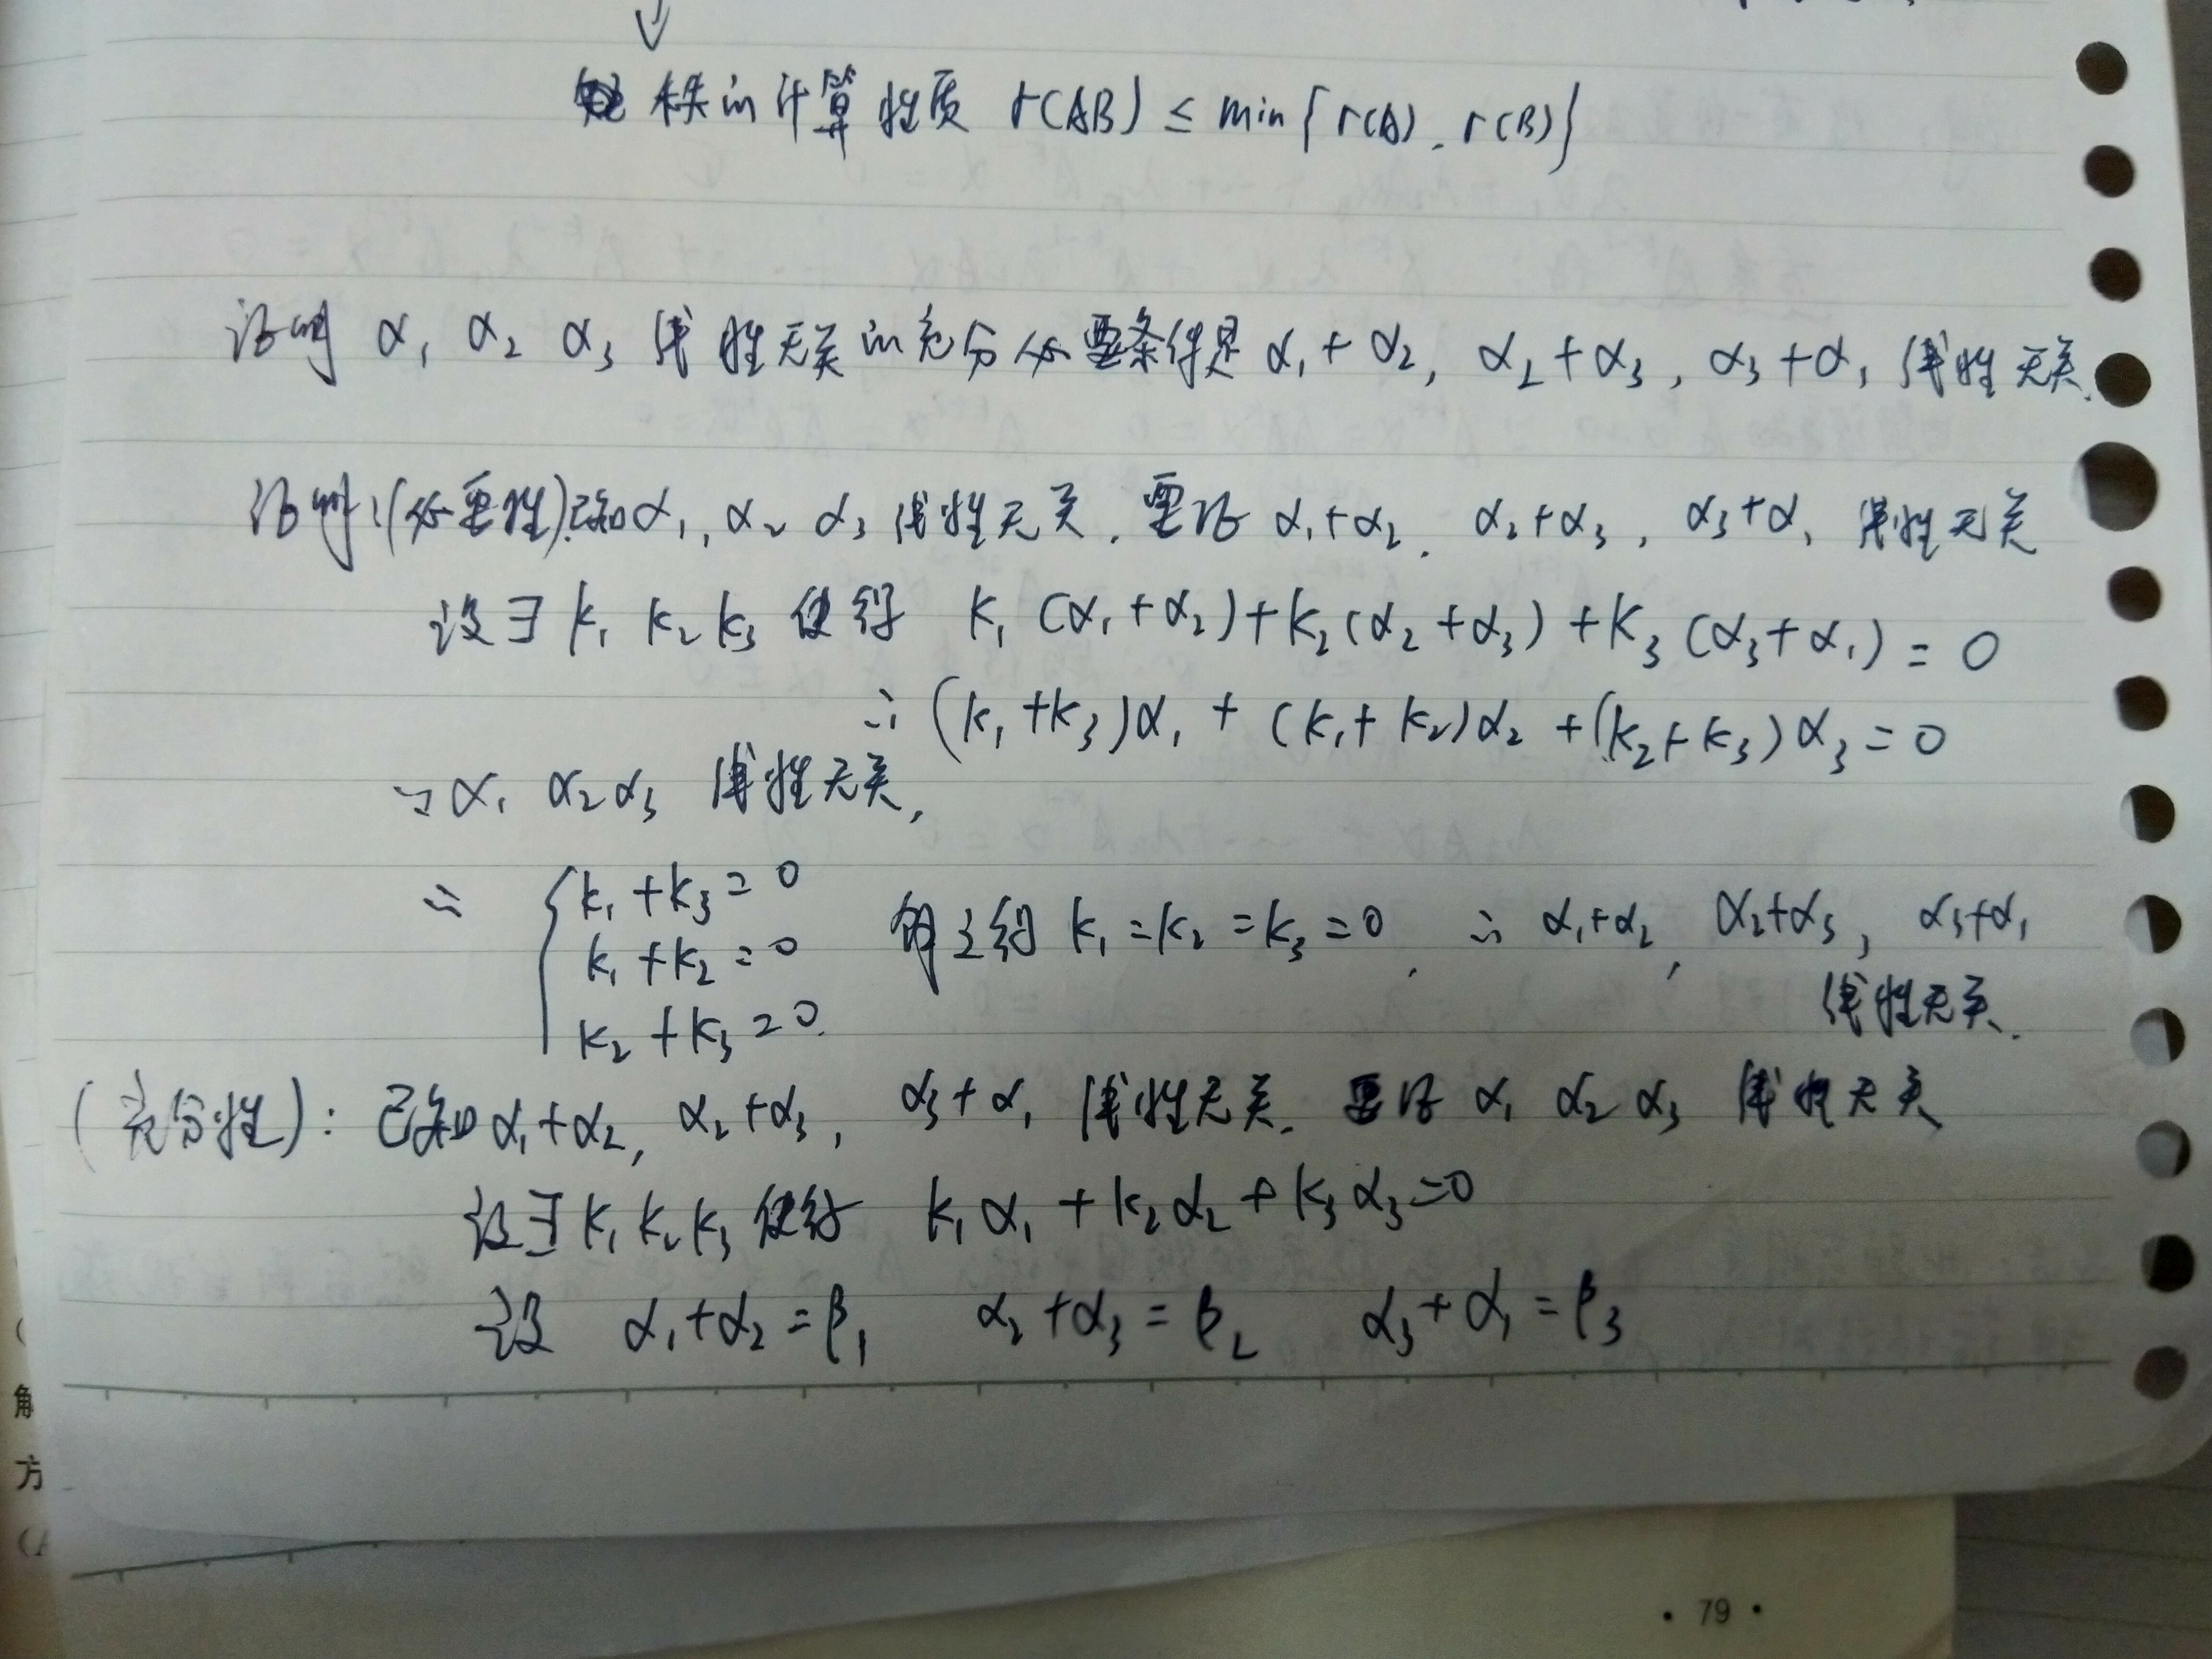 秩的计算性质 r(AB) ≤ min{r(A), r(B)}
证明 α₁ α₂ α₃ 线性无关的充分必要条件是 α₁+α₂, α₂+α₃, α₃+α₁ 线性无关.
证明:(必要性).已知α₁, α₂ α₃ 线性无关. 要证 α₁+α₂, α₂+α₃, α₃+α₁ 线性无关
设∃ k₁ k₂ k₃ 使得 k₁(α₁+α₂)+k₂(α₂+α₃)+k₃(α₃+α₁)=0
∴ (k₁+k₃)α₁ + (k₁+k₂)α₂ + (k₂+k₃)α₃=0
∵ α₁ α₂ α₃ 线性无关,
∴ { k₁+k₃=0
k₁+k₂=0 解之得 k₁=k₂=k₃=0, ∴ α₁+α₂, α₂+α₃, α₃+α₁
线性无关.
k₂+k₃=0.
(充分性): 已知α₁+α₂, α₂+α₃, α₃+α₁ 线性无关. 要证 α₁ α₂ α₃ 线性无关
设∃ k₁ k₂ k₃ 使得 k₁α₁+k₂α₂+k₃α₃=0
设 α₁+α₂=β₁ α₂+α₃=β₂ α₃+α₁=β₃
解
方
· 79 ·